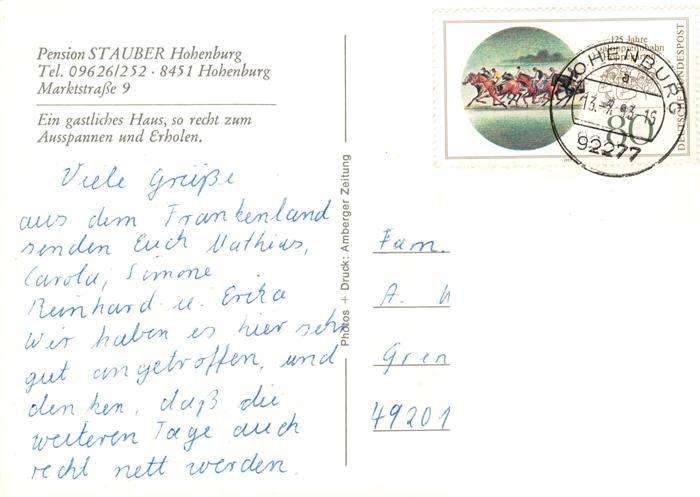 Pension STAUBER Hohenburg
Tel. 09626/252 · 8451 Hohenburg
Marktstraße 9
Ein gastliches Haus, so recht zum
Ausspannen und Erholen.
Viele Grüße
aus dem Frankenland
senden Euch Mathias,
Carola, Simone
Reinhard u. Erika
Wir haben es hier sehr
gut angetroffen, und
denken, daß die
weiteren Tage auch
recht nett werden.
Photos + Druck: Amberger Zeitung
125 Jahre
DEUTSCHE BUNDESPOST
80
HOHENBURG
a
92277
Fam.
A.
Gren
49201